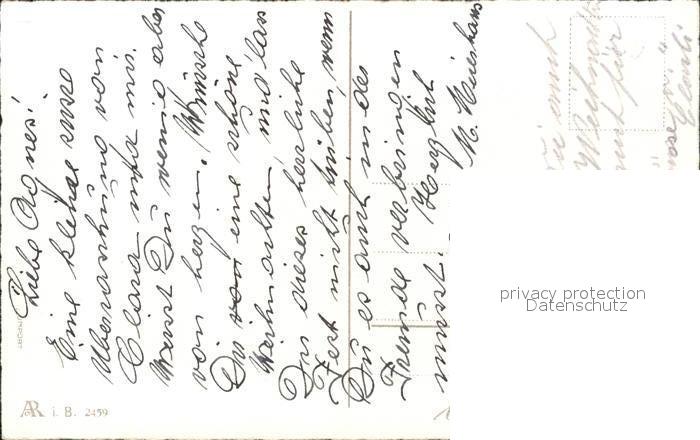 Liebe Agnes!
Eine kleine süsse
Überraschung von
Clara und mir.
Weisst Du wenig aber
von herzen. Wünsche
Dir eine schöne
Weihnachten, und lass
Dir dieses herrliche
Fest nicht trüben, wenn
Du es auch in der
Fremde verbringen
musst. Herzlich
M.
IMPORT
AR i. B. 2459
privacy protection
Datenschutz